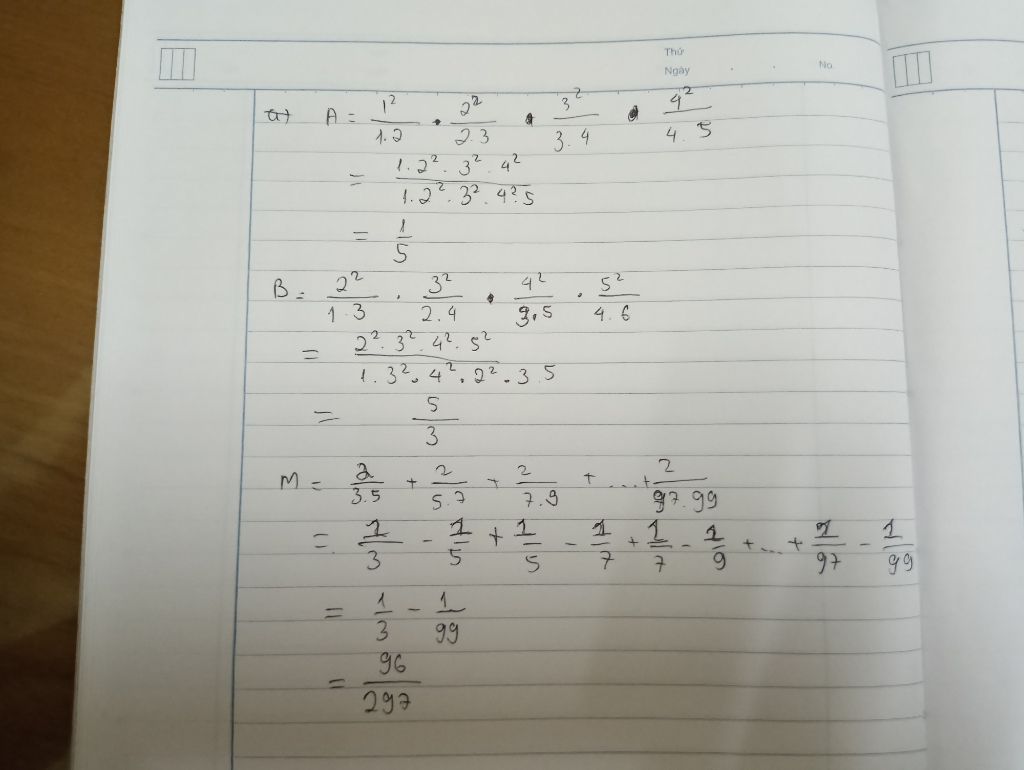 Thứ
Ngày . . No.
a) A = 1²/1.2 . 2²/2.3 . 3²/3.4 . 4²/4.5
= 1.2².3².4²/1.2².3².4².5
= 1/5
B = 2²/1.3 . 3²/2.4 . 4²/3.5 . 5²/4.6
= 2².3².4².5²/1.3².4².2².3.5
= 5/3
M = 2/3.5 + 2/5.7 + 2/7.9 + ...+ 2/97.99
= 1/3 - 1/5 + 1/5 - 1/7 + 1/7 - 1/9 + ... + 1/97 - 1/99
= 1/3 - 1/99
= 96/297